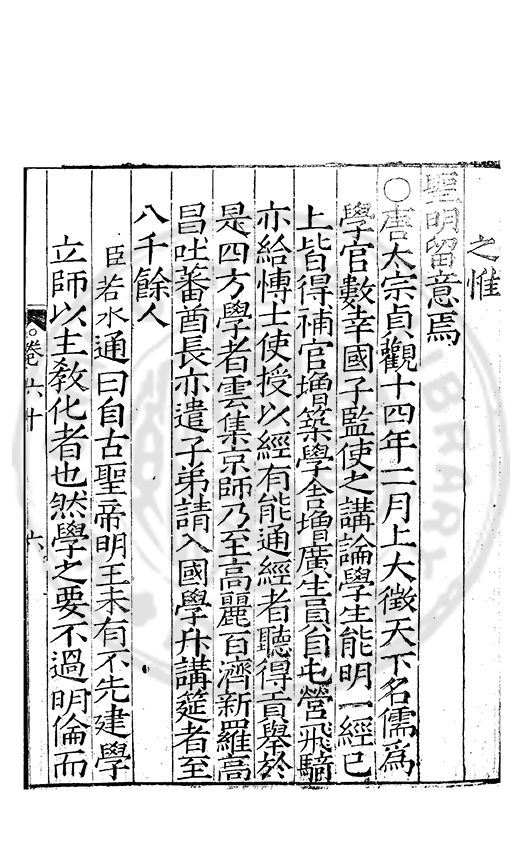 之惟
聖明留意焉
○唐太宗貞觀十四年二月上大徵天下名儒爲
學官數幸國子監使之講論學生能明一經已
上皆得補官增築學舍增廣生員自屯營飛騎
亦給博士使授以經有能通經者聽得貢舉於
是四方學者雲集京師乃至高麗百濟新羅高
昌吐蕃酋長亦遣子弟請入國學升講筵者至
八千餘人
臣若水通曰自古聖帝明王未有不先建學
立師以主敎化者也然學之要不過明倫而
卷六十 六